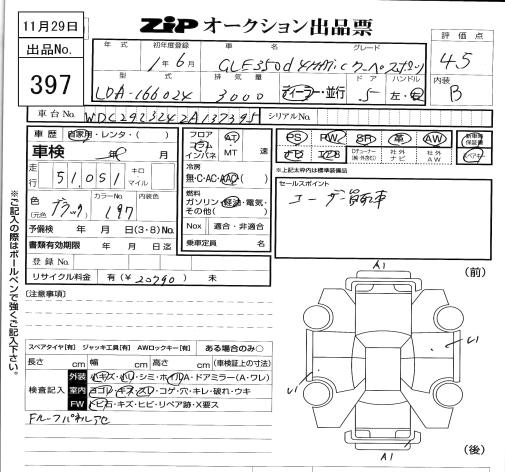 11月29日
出品No.
397
ZiP オークション出品票
評価点
4.5
内装
B
年式 初年度登録 車名 グレード
1年6月 GLE350d 4MATiC クーペ スポーツ
型式 排気量 ドア ハンドル
LDA-166024 3000 ディーラー・並行 5 左・右
車台No. WDC2923242A137395 シリアルNo.
車歴 自家用・レンタ・( )
車検 年 月
走行 51,051 キロ マイル
色 (元色) ブラック カラーNo. 197 内装色
予備検 年 月 日(3・8)No.
書類有効期限 年 月 日迄
登録No.
リサイクル料金 有(¥ 20790 ) 無
フロア コラム インパネ AT MT 速
冷房 無・C・AC・AAC
燃料 ガソリン・軽油・電気・その他( )
Nox 適合・非適合
乗車定員 名
PS PW SR 革 AW
ナビ エアB Dチューナー(純・外含む) 社外ナビ 社外AW
新車時保証書
※上記太枠内は標準装備品
セールスポイント
ユーザー買取車
※ご記入の際はボールペンで強くご記入下さい。
[注意事項]
スペアタイヤ[有] ジャッキ工具[有] AWロックキー[有] ある場合のみ○
長さ cm 幅 cm 高さ cm (車検証上の寸法)
検査記入
外装 小キズ・凹・シミ・ホイルA・ドアミラー(A・ワレ)
室内 ヨゴレ・キズ・スレ・コゲ・穴・キレ・破れ・ウキ
FW トビ石・キズ・ヒビ・リペア跡・X要ス
Fルーフパネルアセ
(前)
A1
い
い
A1
(後)